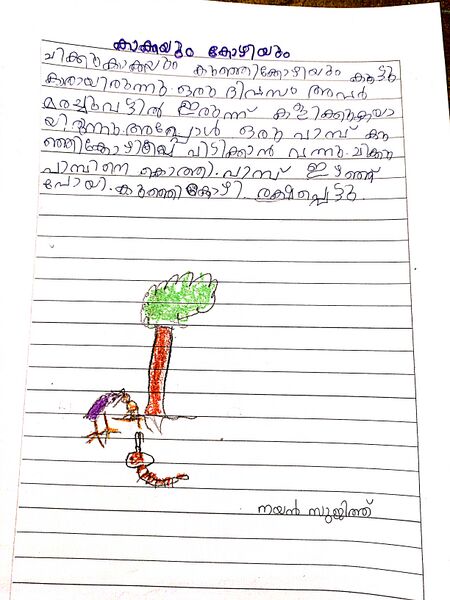 കാക്കയും കോഴിയും
ചിക്കുകാക്കയും കുഞ്ഞിക്കോഴിയും കൂട്ടു
കാരായിരുന്നു. ഒരു ദിവസം അവർ
മരച്ചുവട്ടിൽ ഇരുന്ന് കളിക്കുകയാ
യിരുന്നു. അപ്പോൾ ഒരു പാമ്പ് കു
ഞ്ഞിക്കോഴിയെ പിടിക്കാൻ വന്നു. ചിക്കു
പാമ്പിനെ കൊത്തി. പാമ്പ് ഇഴഞ്ഞ്
പോയി. കുഞ്ഞിക്കോഴി രക്ഷപ്പെട്ടു.
നയൻ സുജിത്ത്